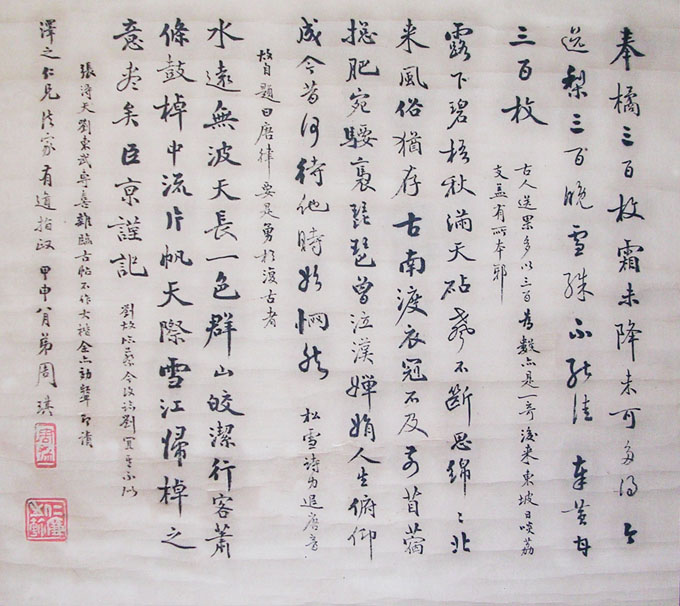 奉橘三百枚霜未降未可多得今
送梨三百晚雪殊不能佳 奉黄甘
三百枚
古人送果多以三百為數亦是一奇後来東坡日啖荔
支益有所本耶
露下碧梧秋滿天砧聲不斷思綿綿北
来風俗猶存古南渡衣冠不及前苜蓿
總肥宛騕褭琵琶曾泣漢嬋娟人生俯仰
成今昔何待他時始惘然 松雪詩力追唐音
故自題曰唐律 要是勇於復古者
水遠無波天長一色群山皎潔行客蕭
條鼓棹中流片帆天際雪江歸棹之
意盡矣臣京謹記
張得天劉東武喜雜臨古帖不作大
澤之仁兄法家有道指政 甲申八月弟周淇